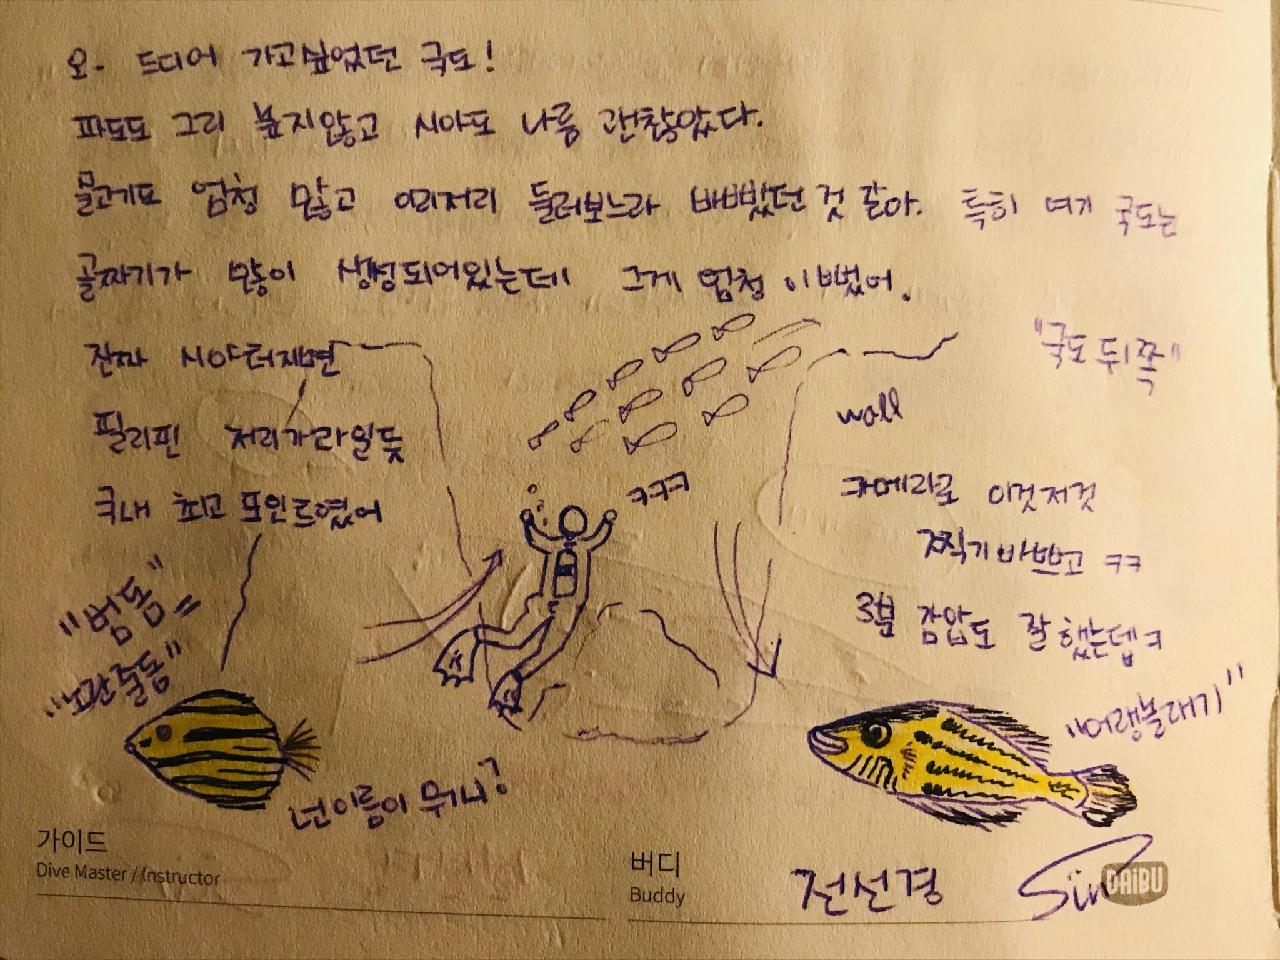 오- 드디어 가고싶었던 국도!
파도도 그리 높지않고 시야도 나름 괜찮았다.
물고기도 엄청 많고 이리저리 둘러보느라 바빴던 것 같아. 특히 여기 국도는
골짜기가 많이 생성되어있는데 그게 엄청 이뻤어.
진짜 시야터지면
필리핀 저리가라일듯
국내 최고 포인트였어
"국도 뒤쪽"
wall
카메라로 이것저것
찍기바쁘고 ㅋㅋ
3분 잠압도 잘했는뎁ㅋ
ㅋㅋㅋ
"범돔"
"줄돔"
넌이름이 뭐니?
"어랭놀래기"
가이드
Dive Master / Instructor
버디
Buddy
전선경
Sin
DAiBU